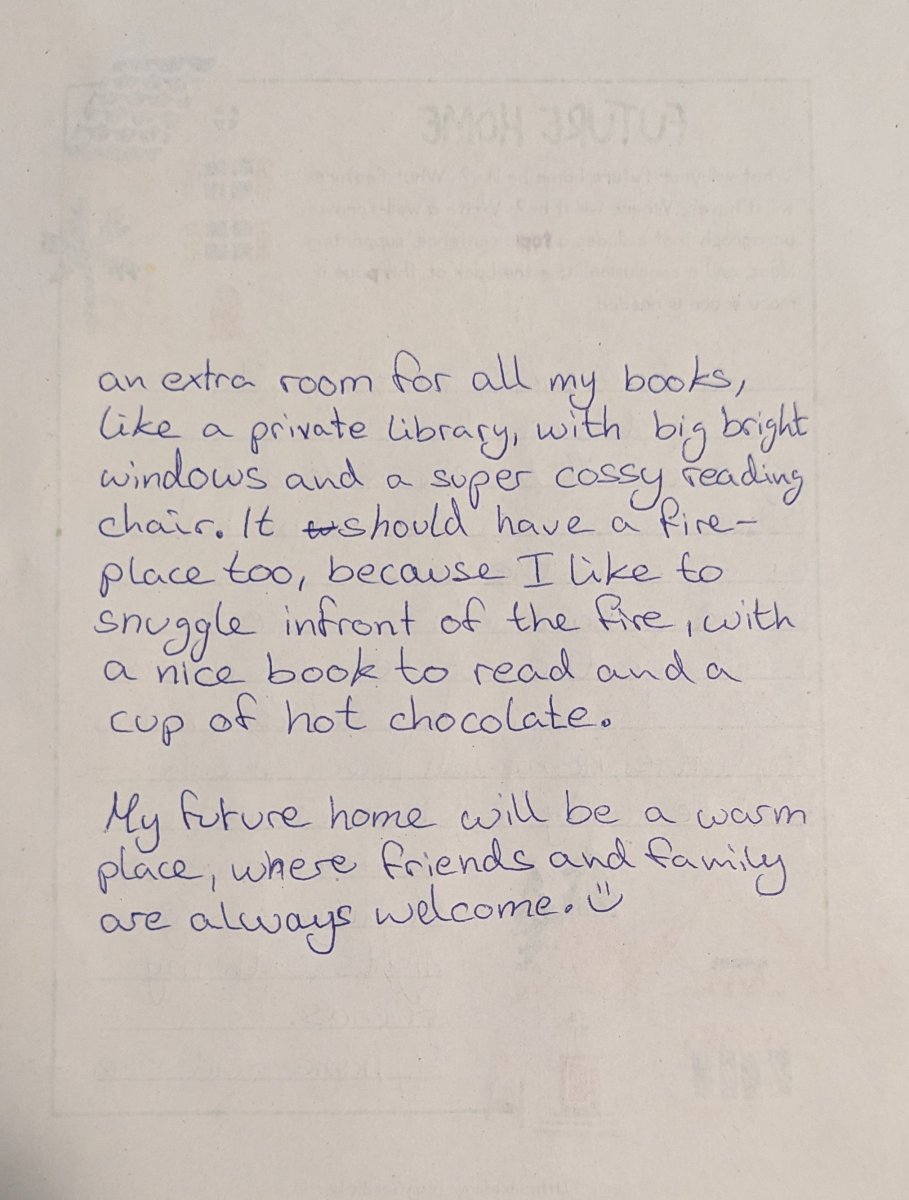 an extra room for all my books,
like a private library, with big bright
windows and a super cossy reading
chair. It should have a fire-
place too, because I like to
snuggle infront of the fire, with
a nice book to read and a
cup of hot chocolate.
My future home will be a warm
place, where friends and family
are always welcome.